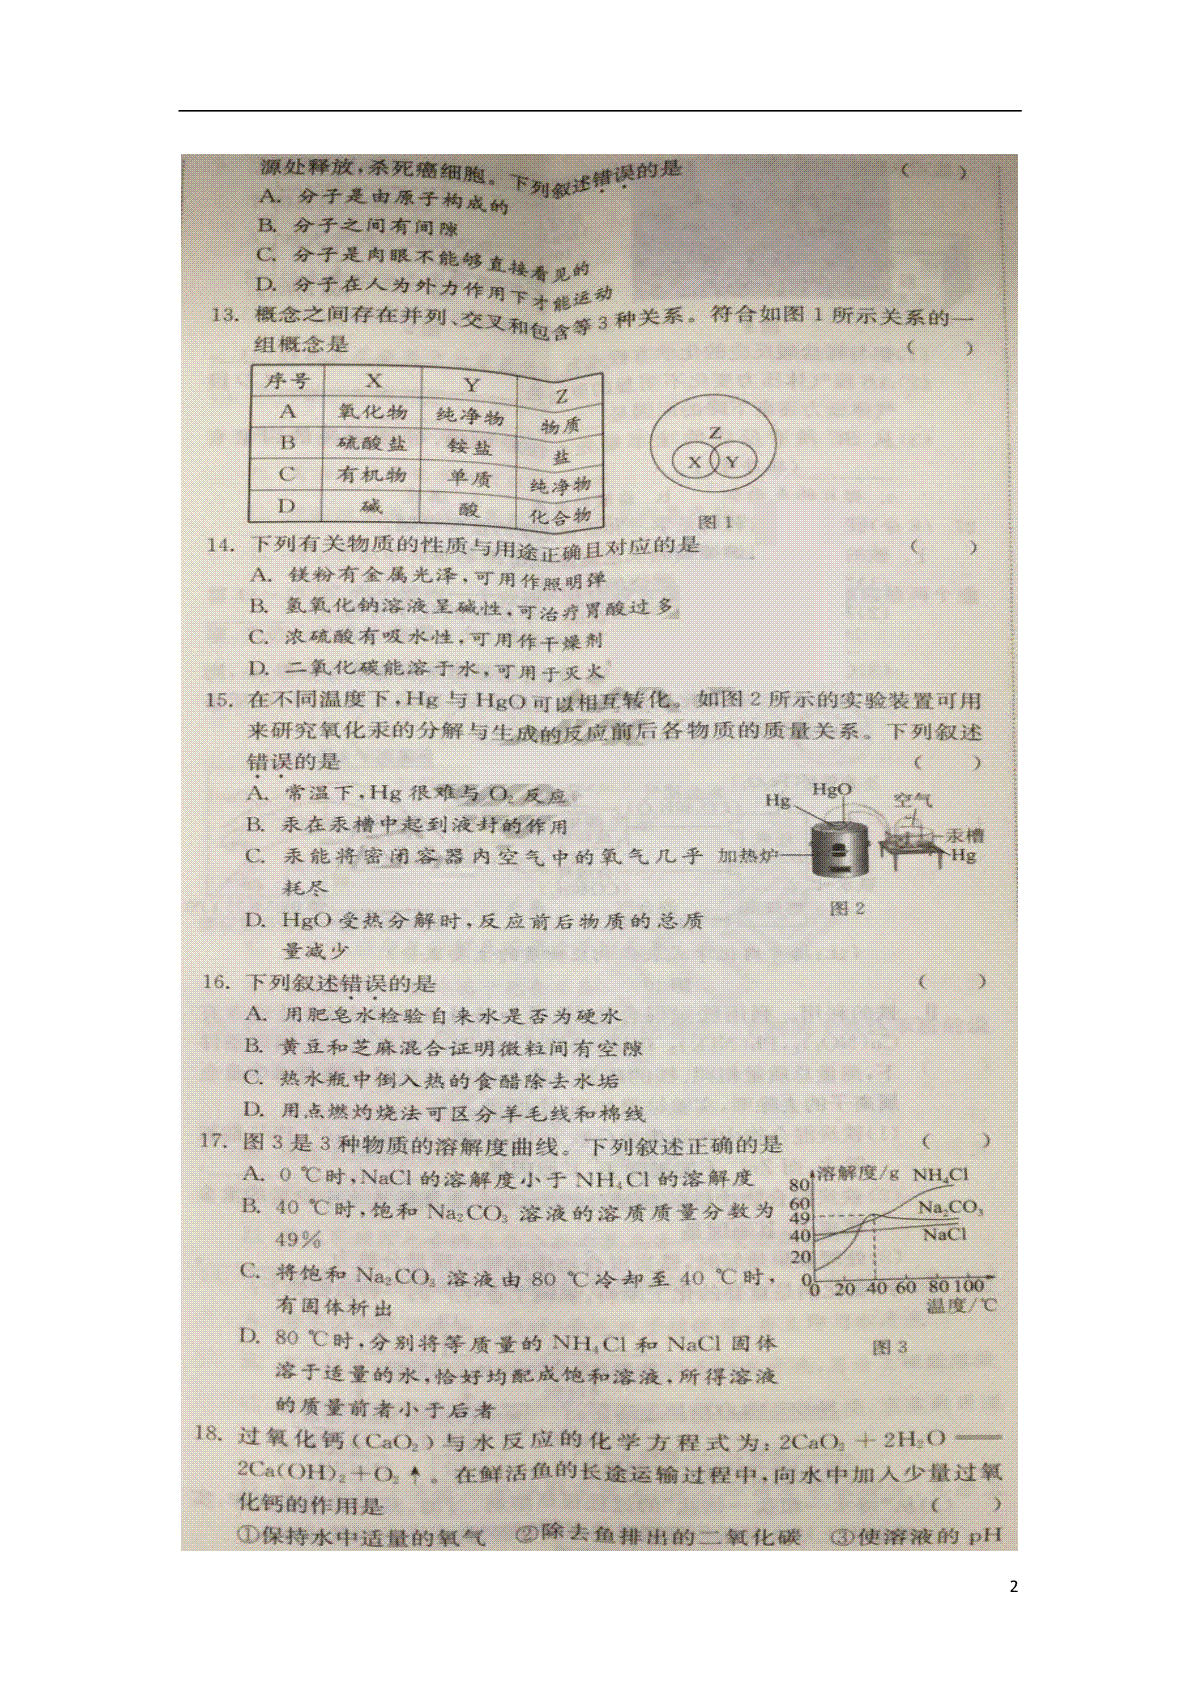 源处释放,杀死癌细胞。下列叙述错误的是 ( )
A. 分子是由原子构成的
B. 分子之间有间隙
C. 分子是肉眼不能够直接看见的
D. 分子在人为外力作用下才能运动
13. 概念之间存在并列、交叉和包含等3种关系。符合如图1所示关系的一
组概念是 ( )
序号 X Y Z
A 氧化物 纯净物 物质
B 硫酸盐 铵盐 盐
C 有机物 单质 纯净物
D 碱 酸 化合物
Z
X Y
图1
14. 下列有关物质的性质与用途正确且对应的是 ( )
A. 镁粉有金属光泽,可用作照明弹
B. 氢氧化钠溶液呈碱性,可治疗胃酸过多
C. 浓硫酸有吸水性,可用作干燥剂
D. 二氧化碳能溶于水,可用于灭火
15. 在不同温度下,Hg与HgO可以相互转化。如图2所示的实验装置可用
来研究氧化汞的分解与生成的反应前后各物质的质量关系。下列叙述
错误的是 ( )
A. 常温下,Hg很难与O₂反应
B. 汞在汞槽中起到液封的作用
C. 汞能将密闭容器内空气中的氧气几乎
耗尽
D. HgO受热分解时,反应前后物质的总质
量减少
Hg HgO 空气
汞槽
加热炉 Hg
图2
16. 下列叙述错误的是 ( )
A. 用肥皂水检验自来水是否为硬水
B. 黄豆和芝麻混合证明微粒间有空隙
C. 热水瓶中倒入热的食醋除去水垢
D. 用点燃灼烧法可区分羊毛线和棉线
17. 图3是3种物质的溶解度曲线。下列叙述正确的是 ( )
A. 0℃时,NaCl的溶解度小于NH₄Cl的溶解度
B. 40℃时,饱和Na₂CO₃溶液的溶质质量分数为
49%
C. 将饱和Na₂CO₃溶液由80℃冷却至40℃时,
有固体析出
D. 80℃时,分别将等质量的NH₄Cl和NaCl固体
溶于适量的水,恰好均配成饱和溶液,所得溶液
的质量前者小于后者
溶解度/g NH₄Cl
80
60 Na₂CO₃
49
40 NaCl
20
0
0 20 40 60 80 100
温度/℃
图3
18. 过氧化钙(CaO₂)与水反应的化学方程式为:2CaO₂+2H₂O══
2Ca(OH)₂+O₂↑。在鲜活鱼的长途运输过程中,向水中加入少量过氧
化钙的作用是 ( )
①保持水中适量的氧气 ②除去鱼排出的二氧化碳 ③使溶液的pH
2